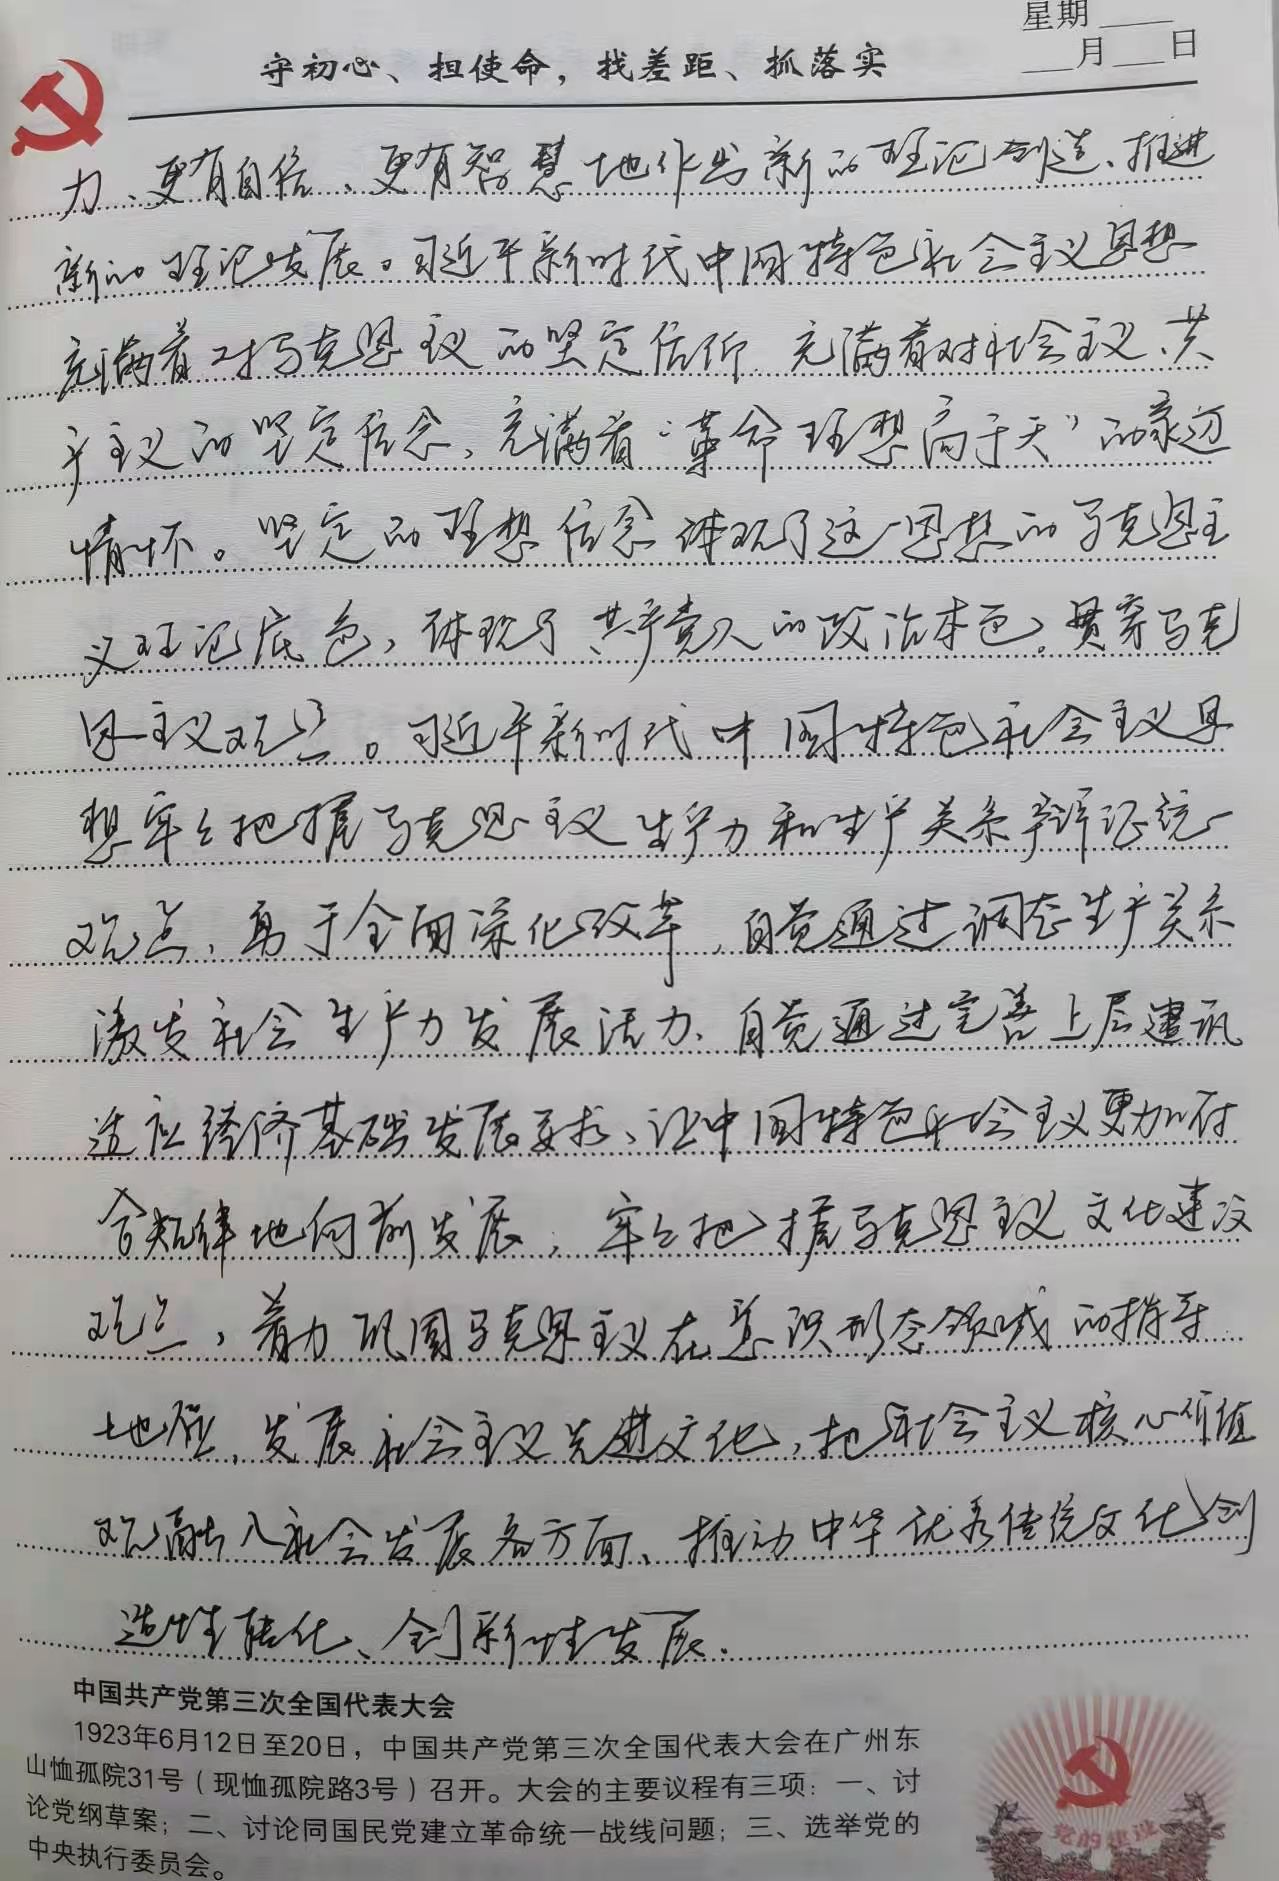 星期____
守初心、担使命，找差距、抓落实
___月___日
力、更有自信、更有智慧地作出新的理论创造、推进
新的理论发展。习近平新时代中国特色社会主义思想
充满着对马克思主义的坚定信仰 充满着对社会主义、共
产主义的坚定信念，充满着“革命理想高于天”的豪迈
情怀。坚定的理想信念体现了这一思想的马克思主
义理论底色，体现了共产党人的政治本色。贯穿马克
思主义观点。习近平新时代中国特色社会主义思
想牢牢把握马克思主义生产力和生产关系辩证统一
观点，勇于全面深化改革，自觉通过调整生产关系
激发社会生产力发展活力、自觉通过完善上层建筑
适应经济基础发展要求、让中国特色社会主义更加符
合规律地向前发展；牢牢把握马克思主义文化建设
观点，着力巩固马克思主义在意识形态领域的指导
地位，发展社会主义先进文化，把社会主义核心价值
观融入社会发展各方面、推动中华优秀传统文化创
造性转化、创新性发展.
中国共产党第三次全国代表大会
1923年6月12日至20日，中国共产党第三次全国代表大会在广州东
山恤孤院31号（现恤孤院路3号）召开。大会的主要议程有三项：一、讨
论党纲草案；二、讨论同国民党建立革命统一战线问题；三、选举党的
中央执行委员会。
党的建设